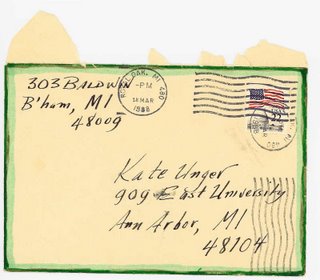 303 BALDWIN
B'ham, MI
48009
ROYAL OAK, MI 480
-PM
14 MAR
1988
Kate Unger
909 East University
Ann Arbor, MI
48104